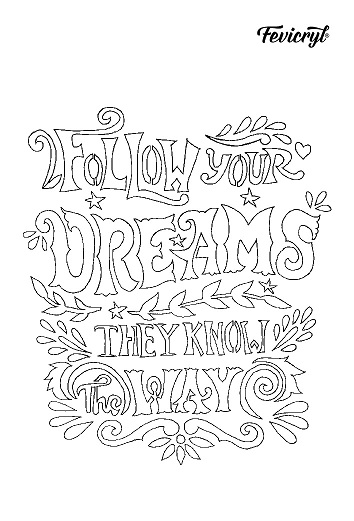 Fevicryl®
FOLLOW YOUR
DREAMS
THEY KNOW
The WAY